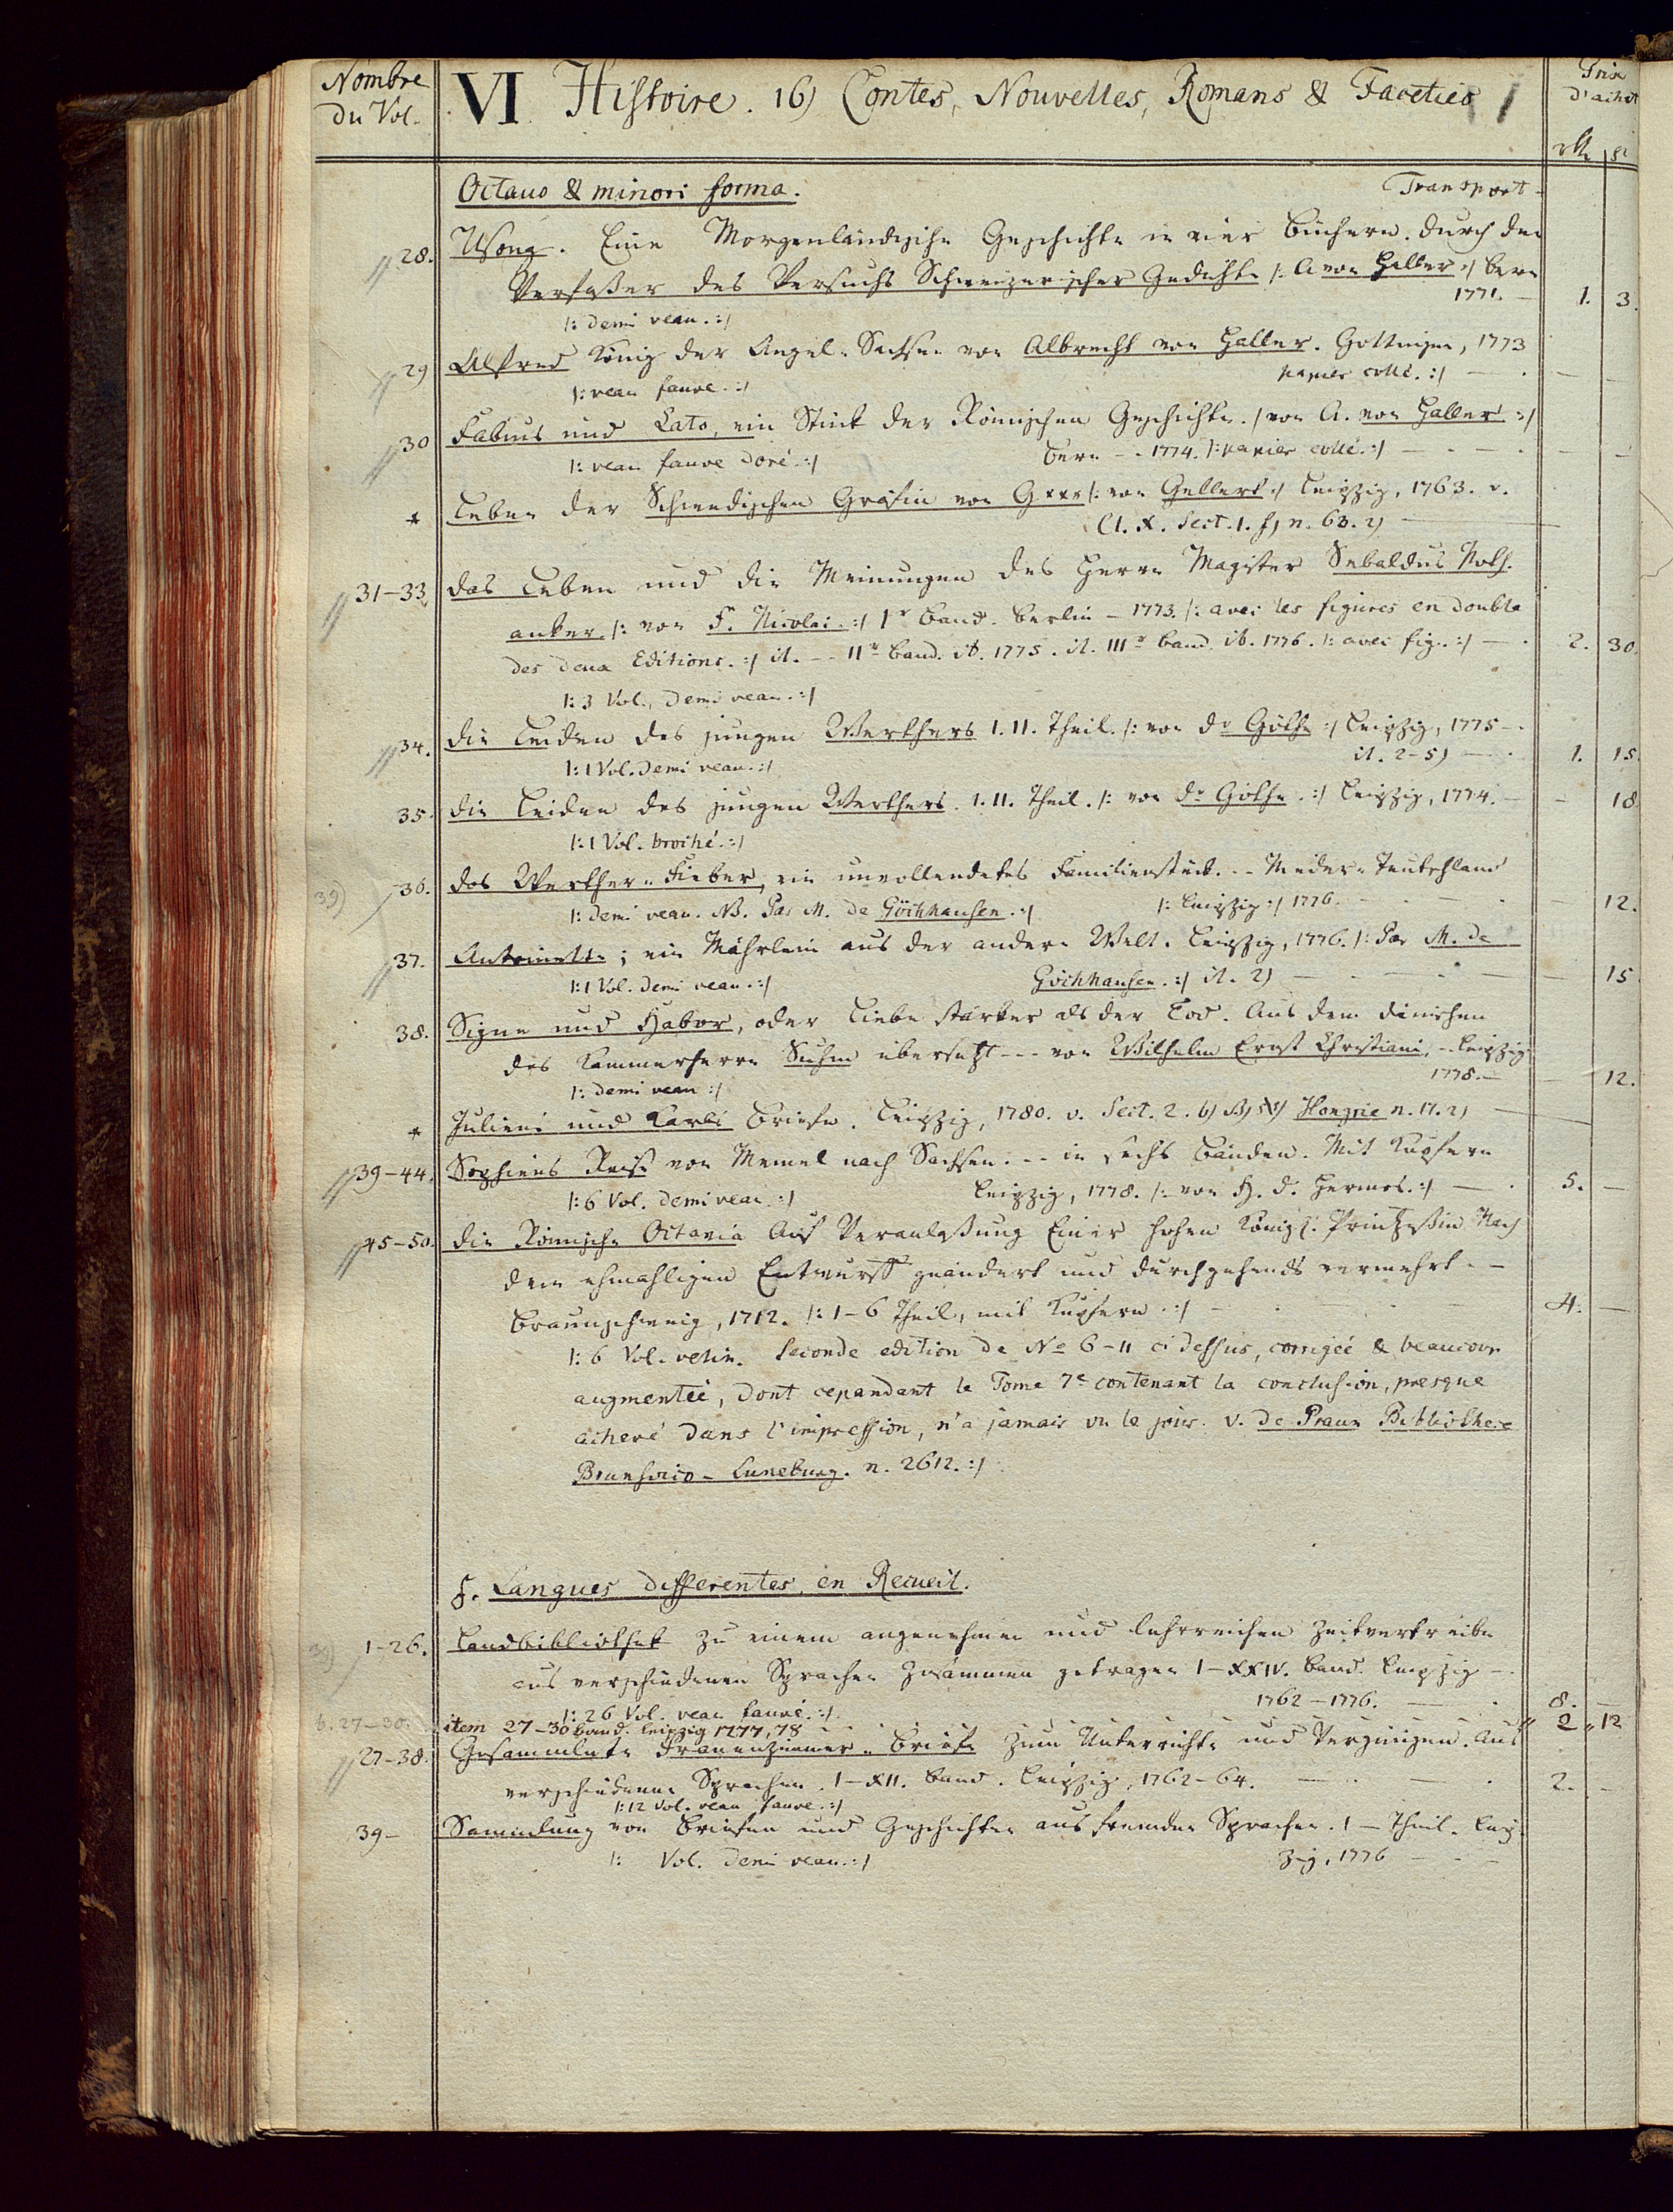 Nombre du Vol. VI Histoire. 16) Contes, Nouvelles, Romans & Faceties Prix d'achat
Octavo & minori forma. Transport
28. Usong. Eine Morgenländische Geschichte in vier Büchern. Durch den
Verfaßer des Versuchs Schweizerischer Gedichte /: A von Haller :/ Bern
1771. 1. 3.
/: demi veau. :/
29 Alfred König der Angel-Sachsen von Albrecht von Haller. Gottingen, 1773
/: veau fauve. :/ papier collé. :/
30 Fabius und Cato, ein Stück der Römischen Geschichte. /von A. von Haller :/
/: veau fauve doré. :/ Bern - - 1774. /: papier collé. :/
* Leben der Schwedischen Gräfin von G*** /: von Gellert :/ Leipzig, 1763. v.
Cl. X. Sect. 1. f) n. 63. 2)
31-33. Das Leben und die Meinungen des Herrn Magister Sebaldus Noth-
anker. /: von F. Nicolai. :/ Ir Band. Berlin - 1773. /: avec les figures en double
des deux Editions. :/ it. - - IIr Band. ib. 1775. it. IIIr Band. ib. 1776. /: avec fig. :/ 2. 30.
/: 3 Vol. demi veau. :/
34. Die Leiden des jungen Werthers I. II. Theil. /: von Dr Göthe :/ Leipzig, 1775
/: 1 Vol. demi veau. :/ it. 2-5) 1. 15.
35. Die Leiden des jungen Werthers. I. II. Theil. /: von Dr Göthe. :/ Leipzig, 1774. - 18
/: 1 Vol. broché. :/
39) 36. Das Werther-Fieber, ein unvollendetes Familienstück. - - Nieder-Teutschland
/: demi veau. NB. Par M. de Göchhausen. :/ /: Leipzig :/ 1776. - 12.
37. Antoinette; ein Mährlein aus der andern Welt. Leipzig, 1776. /: Par M. de
/: 1 Vol. demi veau. :/ Göchhausen. :/ it. 2) - 15
38. Signe und Habor, oder Liebe stärker als der Tod. Aus dem dänischen
des Kammerherrn Suhm übersetzt - - - von Wilhelm Ernst Christiani, - - Leipzig
/: demi veau :/ 1778. - 12.
* Juliens und Karls Briefe. Leipzig, 1780. v. Sect. 2. Hongrie n. 17. 2)
39-44. Sophiens Reise von Memel nach Sachsen. - - in sechs Bänden. Mit Kupfern
/: 6 Vol. demi veau. :/ Leipzig, 1778. /: von H. D. Hermes. :/ 5. -
45-50. Die Römische Octavia Auf Veranlaßung Einer hohen Königl. Printzeßin Nach
dem ehmahligen Entwurff geändert und durchgehends vermehrt. -
Braunschweig, 1712. /: 1-6 Theil, mit Kupfern. :/ 4. -
/: 6 Vol. velin. Seconde edition de No 6-11 ci dessus, corrigée & beaucoup
augmentée, dont cependant le Tome 7e contenant la conclusion, presque
achevé dans l'impression, n'a jamais vu le jour. v. de Praun Bibliothece
Brunsvico-Luneburg. n. 2612. :/
f. Langues differentes, en Recueil.
1-26. Landbibliothek zu einem angenehmen und lehrreichen Zeitvertreibe
aus verschiedenen Sprachen zusammen getragen I-XXIV. Band. Leipzig
1762-1776. 8. -
/: 26 Vol. veau fauve. :/
b. 27-30. item 27-30 Band. Leipzig 1777, 78 2 12
27-38. Gesammlete Frauenzimmer-Briefe zum Unterricht und Vergnügen. Aus
verschiedenen Sprachen. I-XII. Band. Leipzig, 1762-64. 2. -
/: 12 Vol. veau fauve. :/
39- Sammlung von Briefen und Geschichten aus fremden Sprachen. 1 - Theil. Leip-
/: Vol. demi veau. :/ zig, 1776